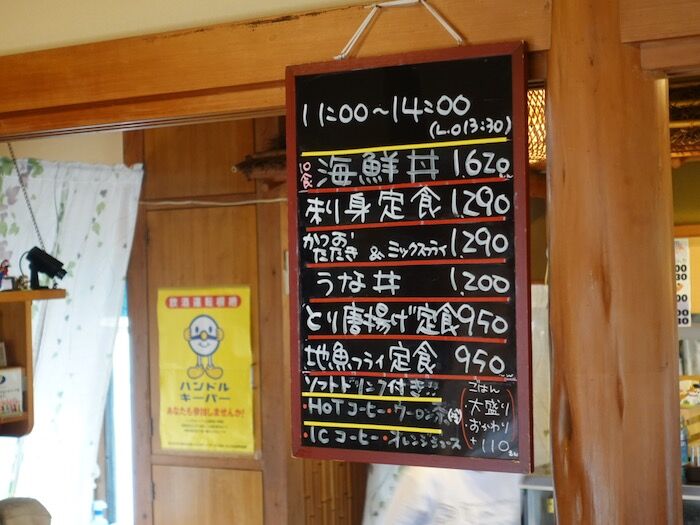 11:00〜14:00
(L.O 13:30)
10食 海鮮丼 1,620えん
刺身定食 1,290
かつおたたき & ミックスフライ 1,290
うな丼 1,200
とり唐揚げ定食 950
地魚フライ定食 950
ソフトドリンク付き!!
・HOTコーヒー・ウーロン茶
・ICコーヒー・オレンジジュース
ごはん
・大盛り
・おかわり
+110えん
飲酒運転根絶
ハンドル
キーパー
あなたも参加しませんか!